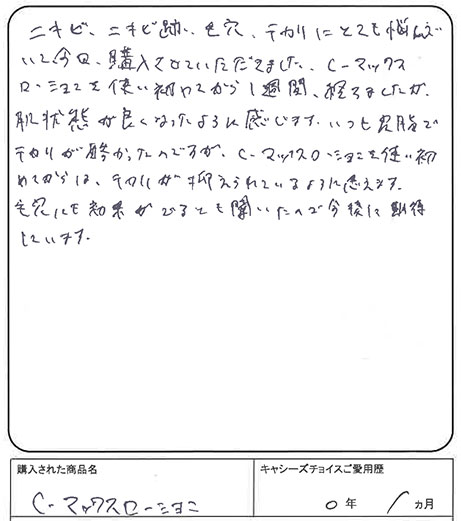 ニキビ、ニキビ跡、毛穴、テカリにとても悩んで
いて今回、購入させていただきました。C-マックス
ローションを使い初めてから1週間、経ちましたが、
肌状態が良くなったように感じます。いつも皮脂で
テカリが酷かったのですが、C-マックスローションを使い初
めてからは、テカリが抑えられているように思えます。
毛穴にも効果がでるとも聞いたので今後に期待
しています。
購入された商品名
キャシーズチョイスご愛用歴
C-マックスローション
0年 1ヵ月